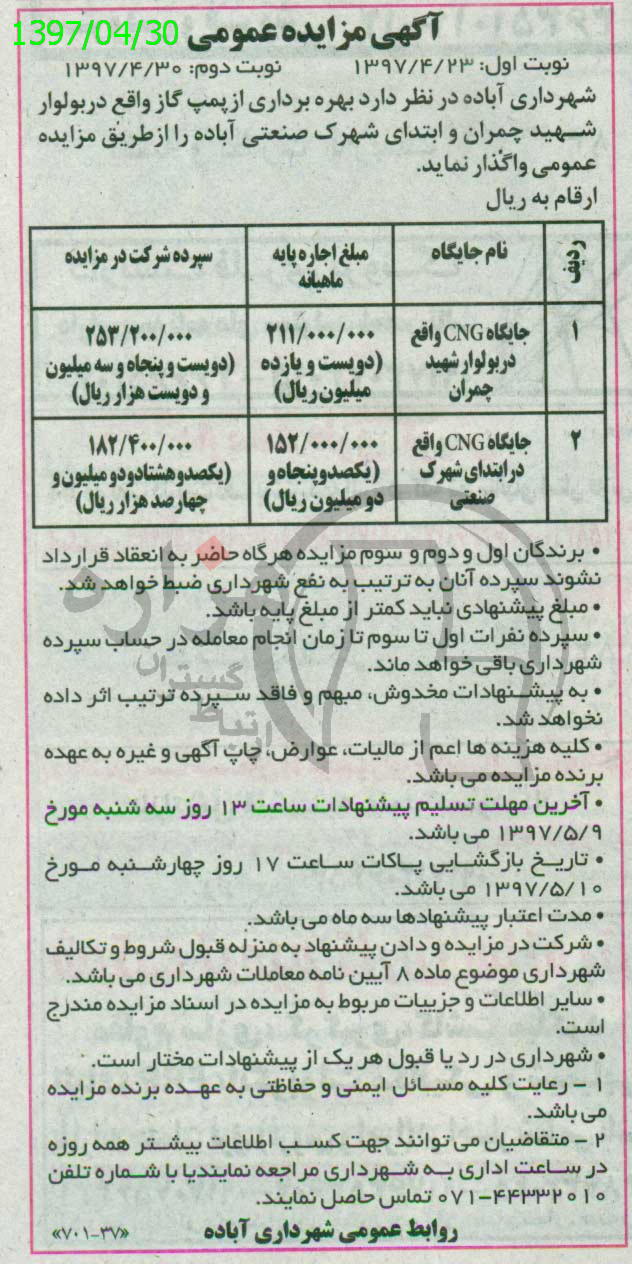 1397/04/30
آگهی مزایده عمومی
نوبت اول: ۱۳۹۷/۴/۲۳ نوبت دوم: ۱۳۹۷/۴/۳۰
شهرداری آباده در نظر دارد بهره برداری از پمپ گاز واقع در بولوار
شهید چمران و ابتدای شهرک صنعتی آباده را از طریق مزایده
عمومی واگذار نماید.
ارقام به ریال
ردیف نام جایگاه مبلغ اجاره پایه سپرده شرکت در مزایده
ماهیانه
۱ جایگاه CNG واقع ۲۱۱/۰۰۰/۰۰۰ ۲۵۳/۲۰۰/۰۰۰
در بولوار شهید (دویست و یازده (دویست و پنجاه و سه میلیون
چمران میلیون ریال) و دویست هزار ریال)
۲ جایگاه CNG واقع ۱۵۲/۰۰۰/۰۰۰ ۱۸۲/۴۰۰/۰۰۰
در ابتدای شهرک (یکصد و پنجاه و (یکصد و هشتاد و دو میلیون و
صنعتی دو میلیون ریال) چهار صد هزار ریال)
• برندگان اول و دوم و سوم مزایده هرگاه حاضر به انعقاد قرارداد
نشوند سپرده آنان به ترتیب به نفع شهرداری ضبط خواهد شد.
• مبلغ پیشنهادی نباید کمتر از مبلغ پایه باشد.
• سپرده نفرات اول تا سوم تا زمان انجام معامله در حساب سپرده
شهرداری باقی خواهد ماند.
• به پیشنهادات مخدوش، مبهم و فاقد سپرده ترتیب اثر داده
نخواهد شد.
• کلیه هزینه ها اعم از مالیات، عوارض، چاپ آگهی و غیره به عهده
برنده مزایده می باشد.
• آخرین مهلت تسلیم پیشنهادات ساعت ۱۳ روز سه شنبه مورخ
۱۳۹۷/۵/۹ می باشد.
• تاریخ بازگشایی پاکات ساعت ۱۷ روز چهارشنبه مورخ
۱۳۹۷/۵/۱۰ می باشد.
• مدت اعتبار پیشنهادها سه ماه می باشد.
• شرکت در مزایده و دادن پیشنهاد به منزله قبول شروط و تکالیف
شهرداری موضوع ماده ۸ آیین نامه معاملات شهرداری می باشد.
• سایر اطلاعات و جزییات مربوط به مزایده در اسناد مزایده مندرج
است.
• شهرداری در رد یا قبول هر یک از پیشنهادات مختار است.
۱ - رعایت کلیه مسائل ایمنی و حفاظتی به عهده برنده مزایده
می باشد.
۲ - متقاضیان می توانند جهت کسب اطلاعات بیشتر همه روزه
در ساعت اداری به شهرداری مراجعه نمایندیا با شماره تلفن
۰۷۱-۴۴۳۳۲۰۱۰ تماس حاصل نمایند.
روابط عمومی شهرداری آباده «۷۰۱-۳۷»